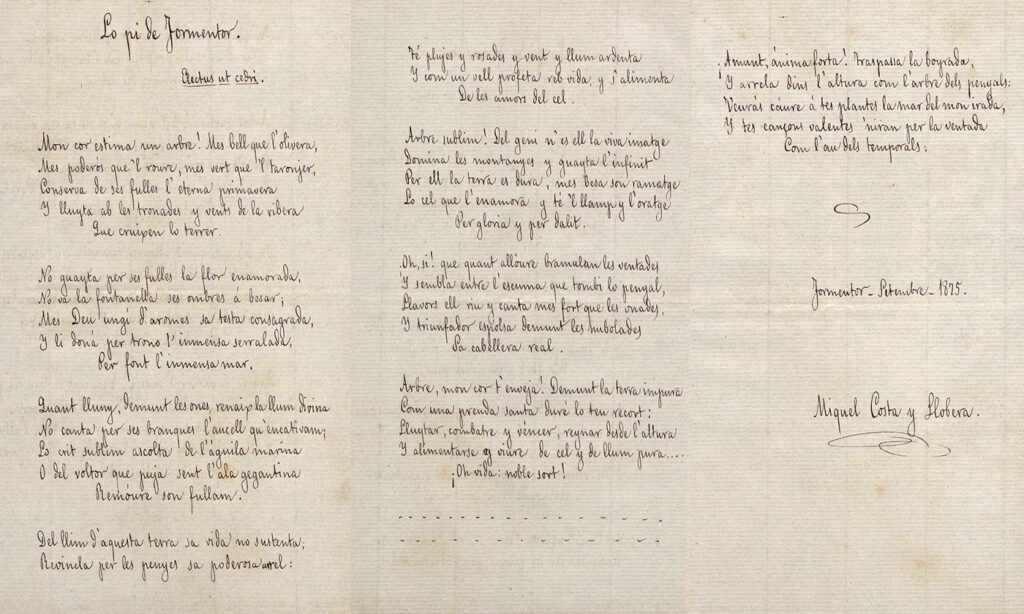 Lo pi de Formentor.
Electus ut cedri.
Mon cor estima un arbre! Mes bell que l'olivera,
Mes poderós que 'l roure, mes vert que 'l taronjer,
Conserva de ses fulles l'eterna primavera
Y lluyta ab les tronades y vents de la ribera
Que cruixen lo terrer.
No guayta per ses fulles la flor enamorada,
No va la fontanella ses ombres á besar;
Mes Deu ungí d'aromes sa testa consagrada,
Y li doná per trono l'inmensa serralada,
Per font l'inmensa mar.
Quant lluny, demunt les ones, renaix la llum divina
No canta per ses branques l'aucell qu'encativam;
Lo crit sublim ascolta de l'águila marina
O del voltor que puja sent l'ala gegantina
Remóure son fullam.
Del llim d'aquesta terra sa vida no sustenta;
Revincla per les penyes sa poderosa arrel:
Té plujes y rosades y vent y llum ardenta
Y com un vell profeta reb vida, y s'alimenta
De les amors del cel.
Arbre sublim! Del geni n'es ell la viva imatge
Domina les montanyes y guayta l'infinit
Per ell la terra es dura, mes besa son ramatge
Lo cel que l'enamora y té 'l llamp y l'oratge
Per gloria y per dalit.
Oh, si! que quant alloure bramulan les ventades
Y sembla entre l'escuma que tombi lo penyal,
Llavors ell riu y canta mes fort que les onades
Y triunfador espolsa demunt les nubolades
Sa cabellera real.
Arbre, mon cor t'enveja! Demunt la terra impura
Com una prenda santa duré lo teu recort:
Lluytar, combatre y véncer, reynar desde l'altura
Y alimentarse y viure de cel y de llum pura....
¡Oh vida: noble sort!
¡Amunt, ánima forta! Traspassa la boyrada,
Y arrela dins l'altura com l'arbre dels penyals:
Veurás cáure á tes plantes la mar del mon irada,
Y tes cançons valentes 'niran per la ventada
Com l'au dels temporals:
Formentor - Setembre - 1875.
Miquel Costa y Llobera.